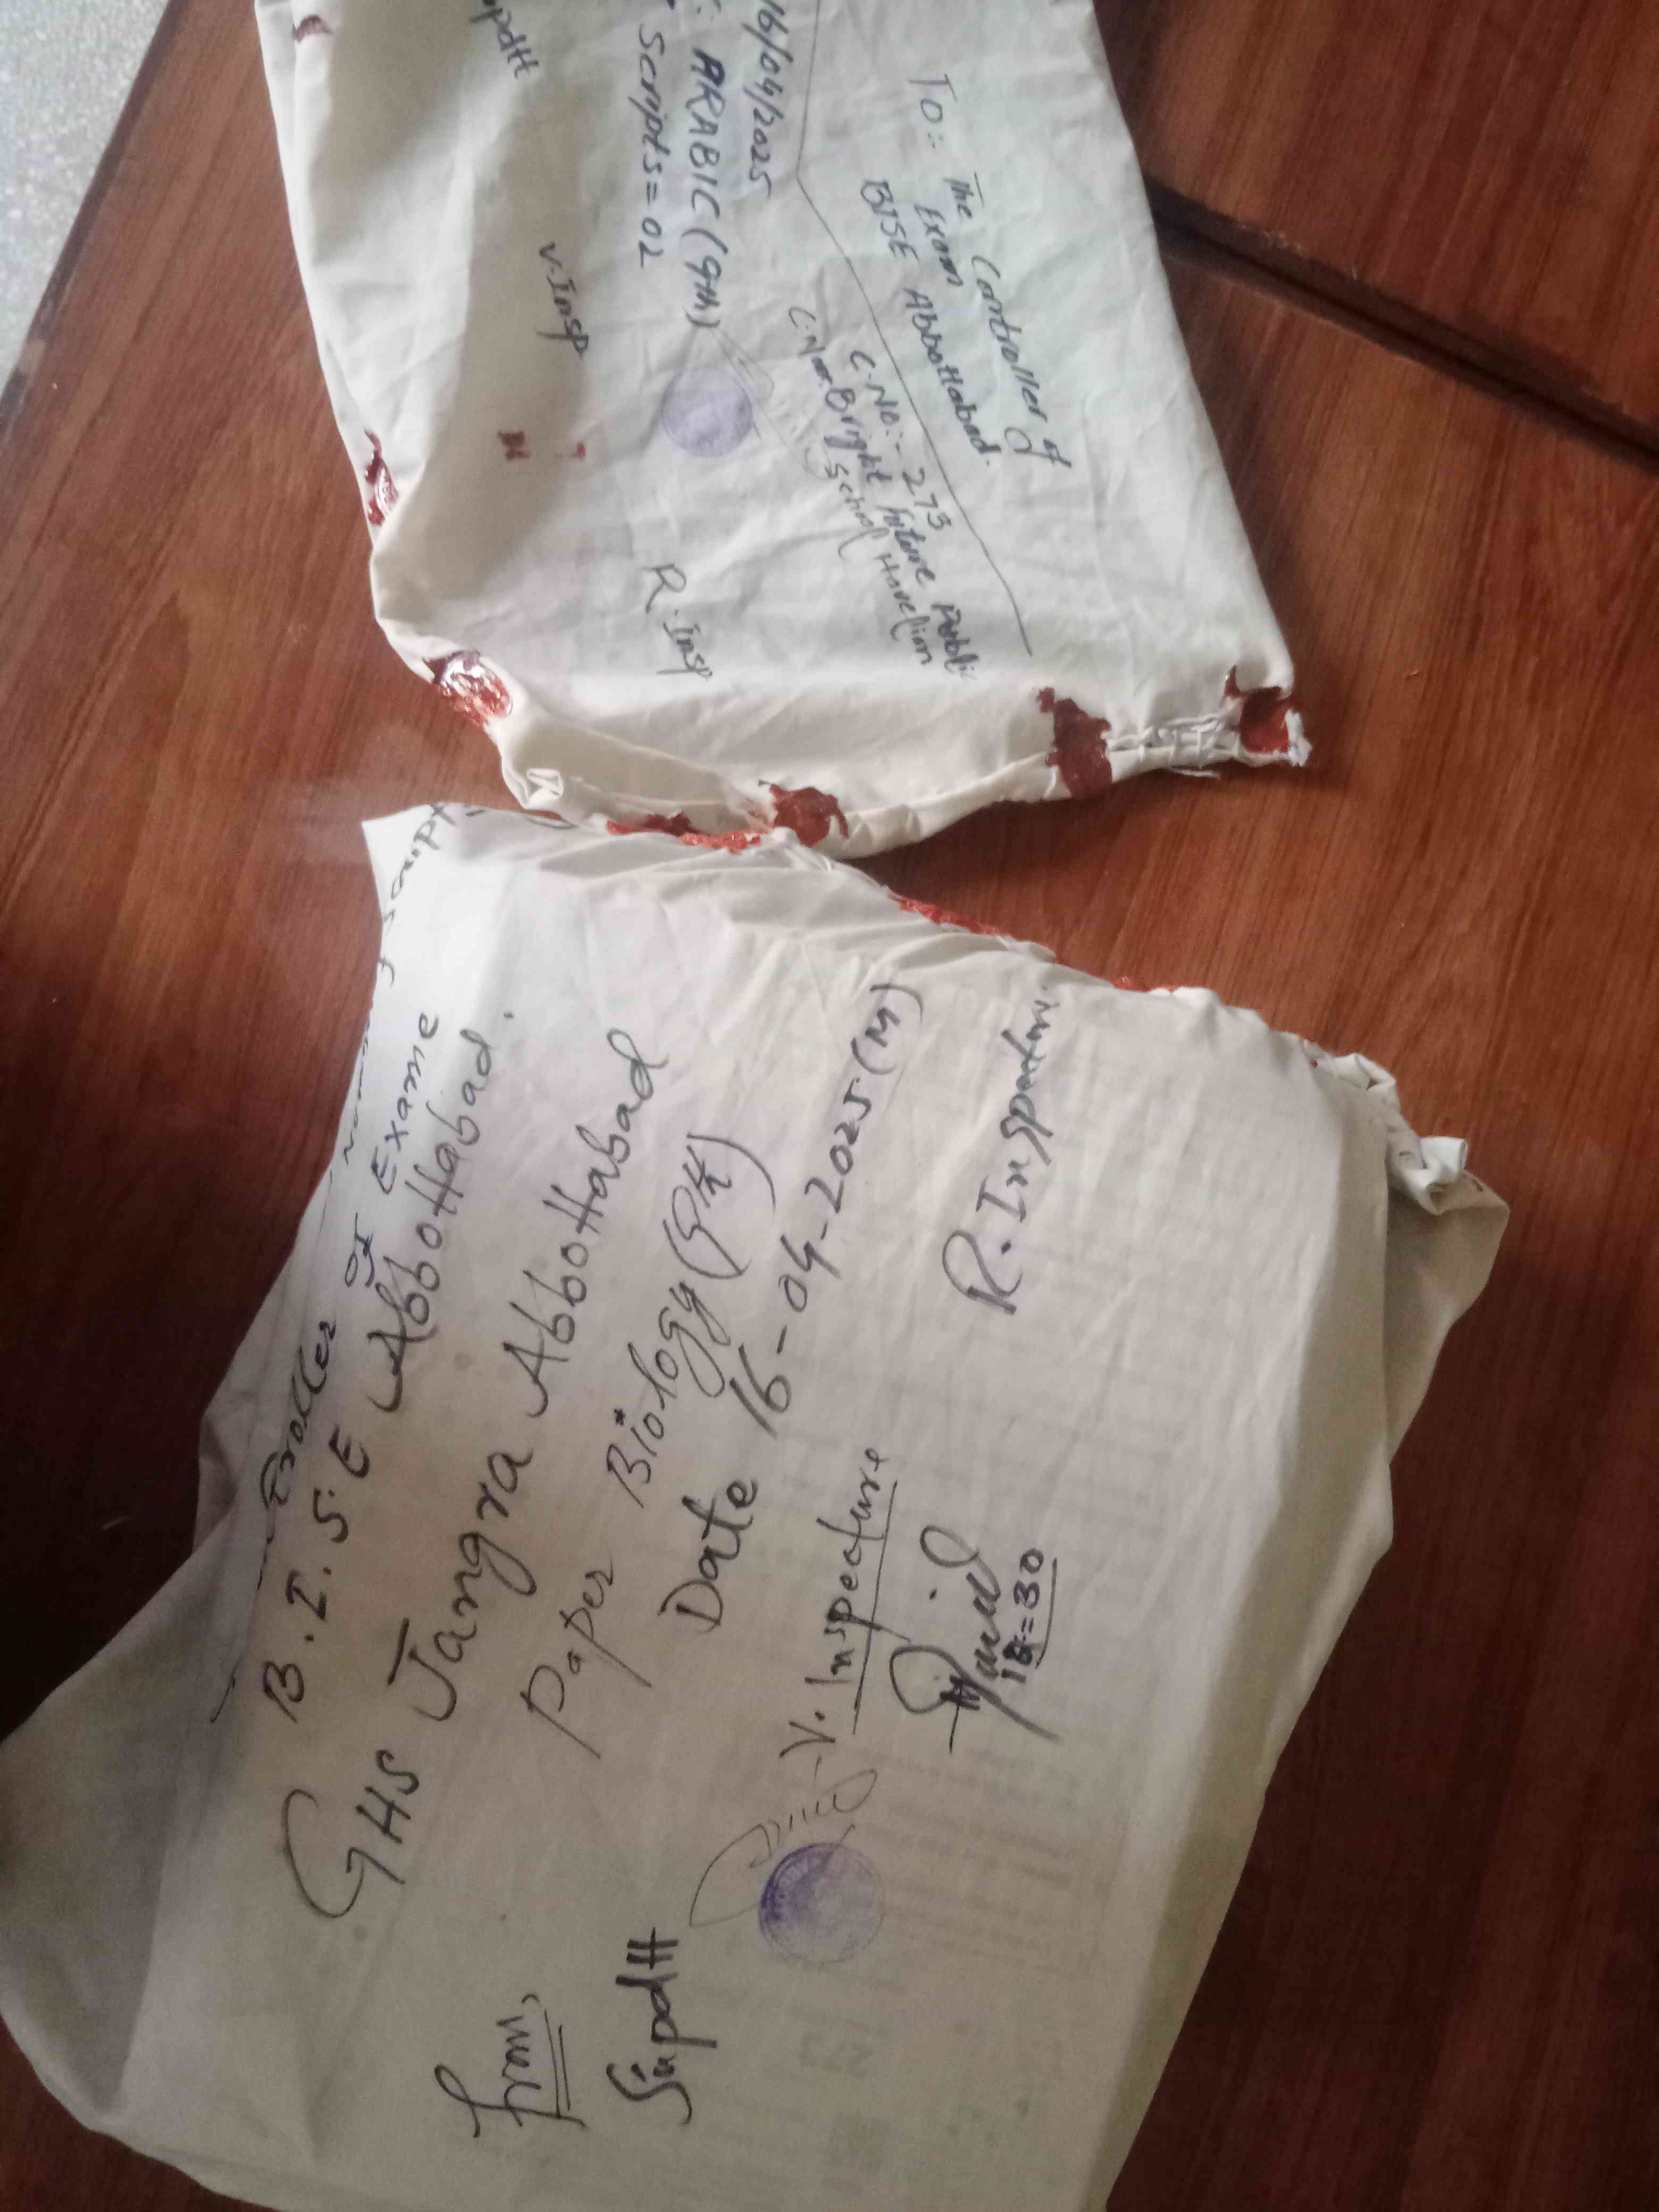 To:- The Controller of
Exam
BISE Abbottabad.
C.No:- 273
Bright Future Public
School Havelian
16/04/2025
: ARABIC (9th)
Scripts = 02
V.Insp
R.Insp
script
of Exame
B.I.S.E Abbottabad.
GHS Jangra Abbottabad
Paper Biology (9th)
Date 16-04-2025 (M)
From,
Supdtt
V. Inspecture
R. Inspectur
= 30